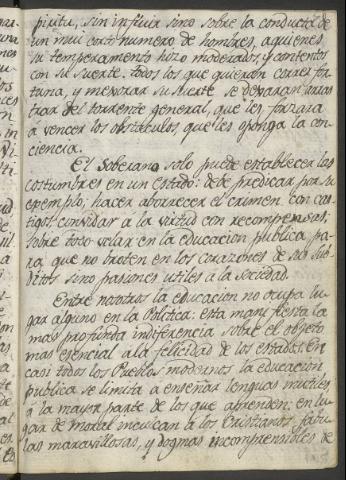 piritu, sin influir sino sobre la conducta de
un mui corto numero de hombres, aquienes
su temperamento hizo moderados, y contentos
con su suerte. todos los que quieran correr for
tuna, y mejorar su suerte se dejaran arras
trar del torrente general, que les forzara
a vencer los obstaculos, que les oponga la con
ciencia.
El Soberano solo puede establecer las
costumbres en un Estado: debe predicar por su
exemplo, hacer aborrecer el crimen con cas
tigos: convidar á la virtud con recompensas;
sobre todo velar en la educacion publica, pa
ra que no broten en los corazones de sus sub
ditos sino pasiones utiles a la Sociedad.
Entre nosotros la educacion no ocupa lu
gar alguno en la Politica: esta manifiesta la
mas profunda indiferencia sobre el objeto
mas esencial ala felicidad de los estados. En
casi todos los Pueblos modernos la educacion
publica se limita a enseñar lenguas inutiles
á la mayor parte de los que aprenden: en lu
gar de moral inculcan a los Cristianos fabu
las maravillosas, y dogmas incomprensibles de